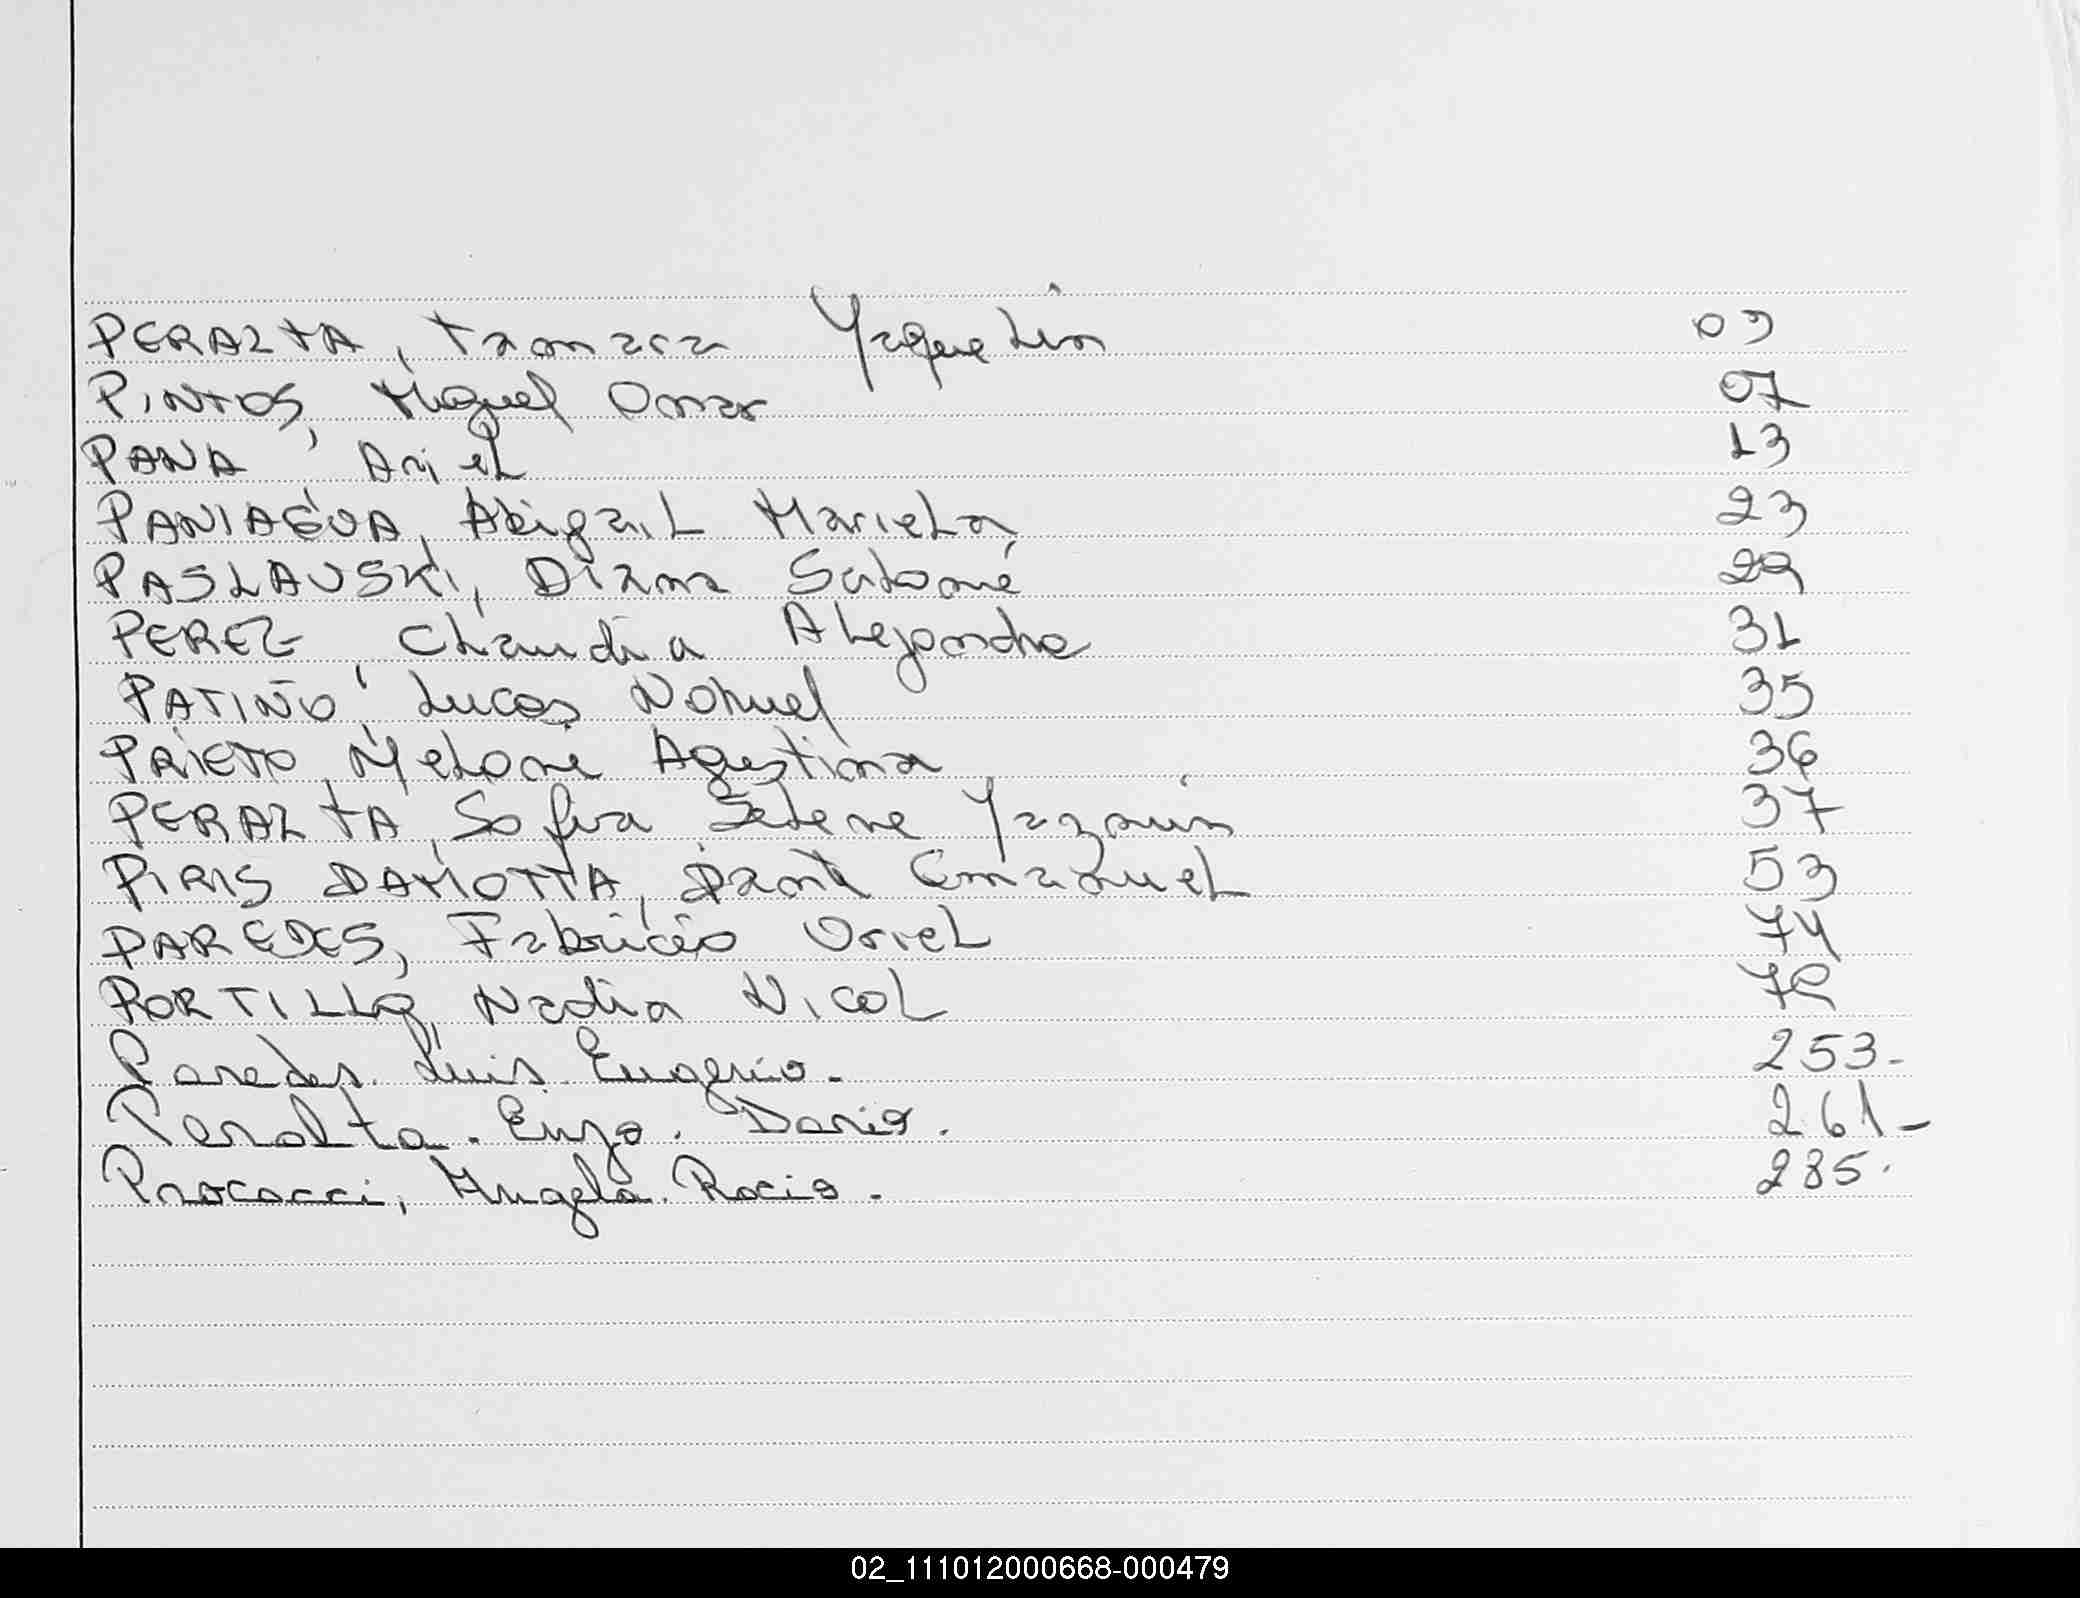 PERALTA, Tamara Yaquelin 03
PINTOS, Miguel Omar 07
PANA, Ariel 13
PANIAGUA, Abigail Mariela 23
PASLAUSKI, Diana Salomé 29
PEREZ, Claudia Alejandra 31
PATIÑO, Lucas Nahuel 35
PRIETO, Melanie Agustina 36
PERALTA, Sofia Selene Yazmin 37
PIRIS DAMOTTA, Dante Emanuel 53
PAREDES, Fabricio Oriel 74
PORTILLO, Nadia Nicol
Paredes. Luis Eugenio. 253-
Peralta. Enzo. Dario. 261-
Procacci, Angela. Rocio. 285.
02_111012000668-000479